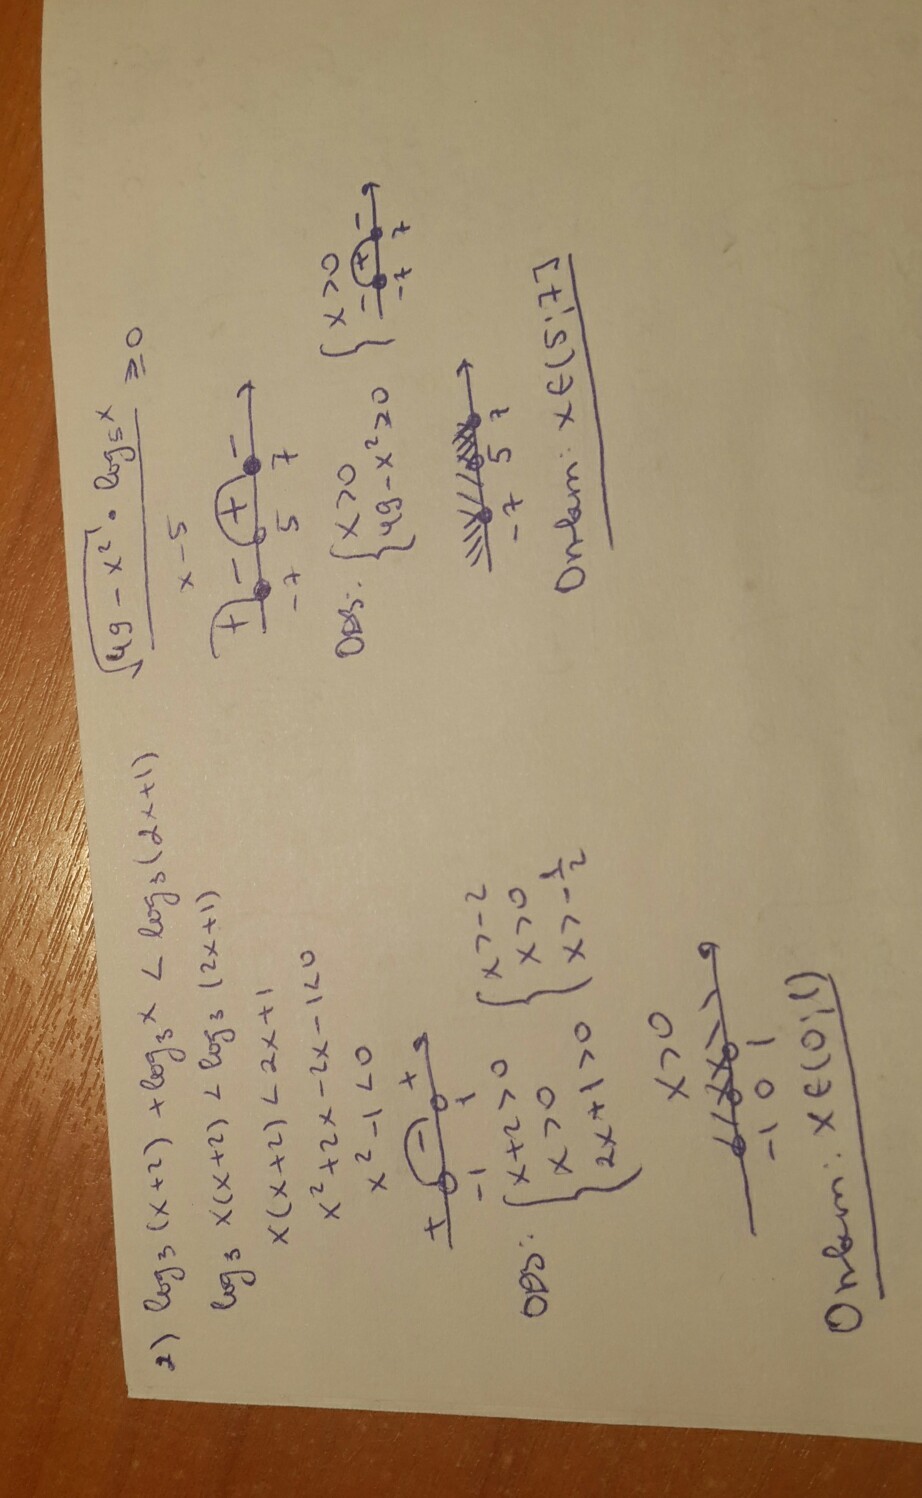 2) log₃(x+2) + log₃x < log₃(2x+1)
log₃ x(x+2) < log₃(2x+1)
x(x+2) < 2x+1
x²+2x-2x-1<0
x²-1<0
+ - +
-1 1
ОДЗ: { x+2>0 { x>-2
x>0 x>0
2x+1>0 x>-1/2
x>0
-1 0 1
Ответ: x∈(0;1)
√(49-x²) · log₅x / (x-5) ≥0
+ - + -
-7 5 7
ОДЗ: { x>0 { x>0
49-x²≥0 - + -
-7 7
-7 5 7
Ответ: x∈(5;7]